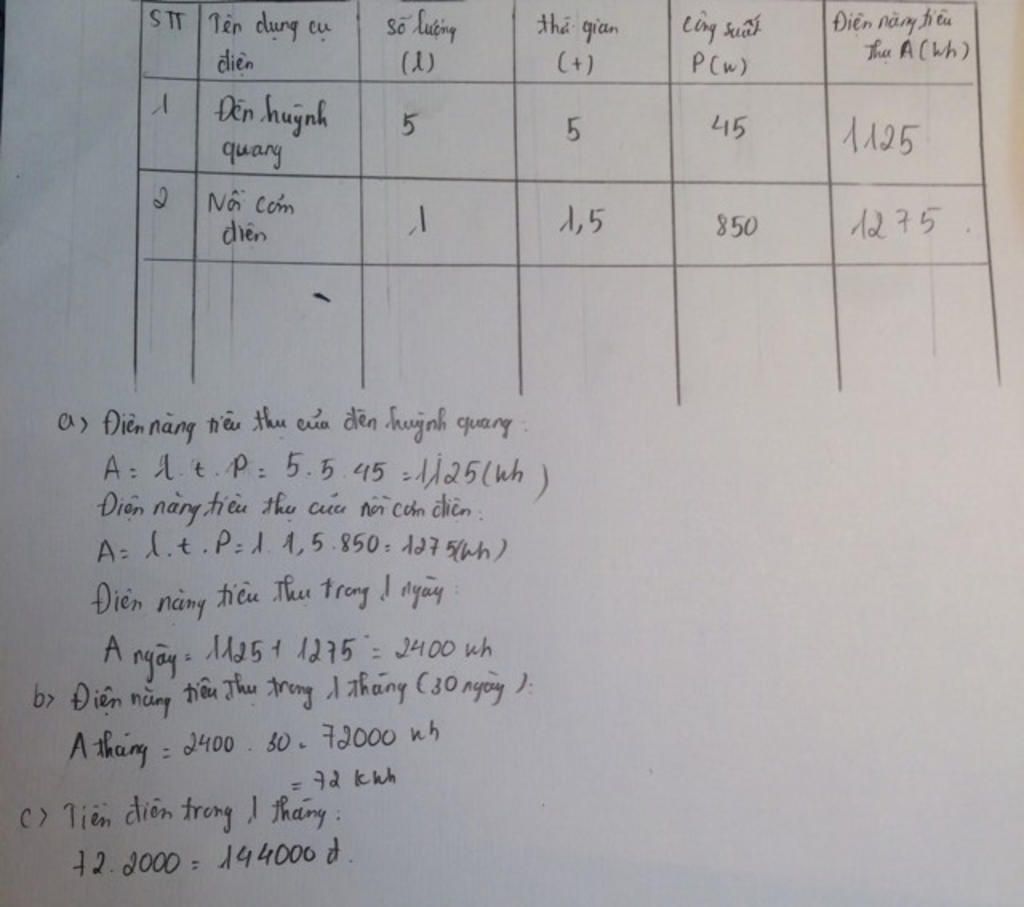 STT Tên dụng cụ điện Số lượng (l) thời gian (t) Công suất P(w) Điện năng tiêu thụ A (Wh)
1 Đèn huỳnh quang 5 5 45 1125
2 Nồi cơm điện 1 1,5 850 1275
a) Điện năng tiêu thụ của đèn huỳnh quang:
A = l. t. P = 5. 5. 45 = 1125 (Wh)
Điện năng tiêu thụ của nồi cơm điện:
A = l. t. P = 1. 1,5. 850 = 1275 (Wh)
Điện năng tiêu thụ trong 1 ngày:
A ngày = 1125 + 1275 = 2400 Wh
b) Điện năng tiêu thụ trong 1 tháng (30 ngày):
A tháng = 2400. 30 = 72000 Wh
= 72 kWh
c) Tiền điện trong 1 tháng:
72. 2000 = 144000 đ.